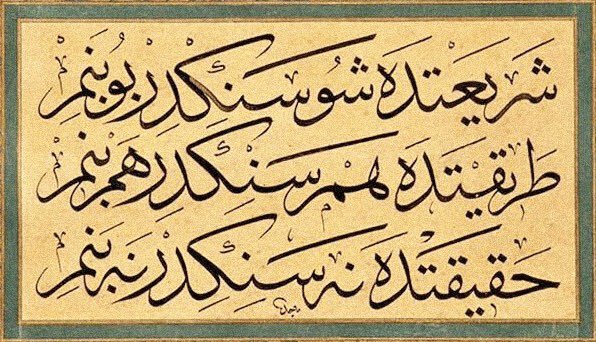 شریعتده شو سنڭدر بو بنم
طریقتده هم سنڭدر هم بنم
حقیقتده نه سنڭدر نه بنم